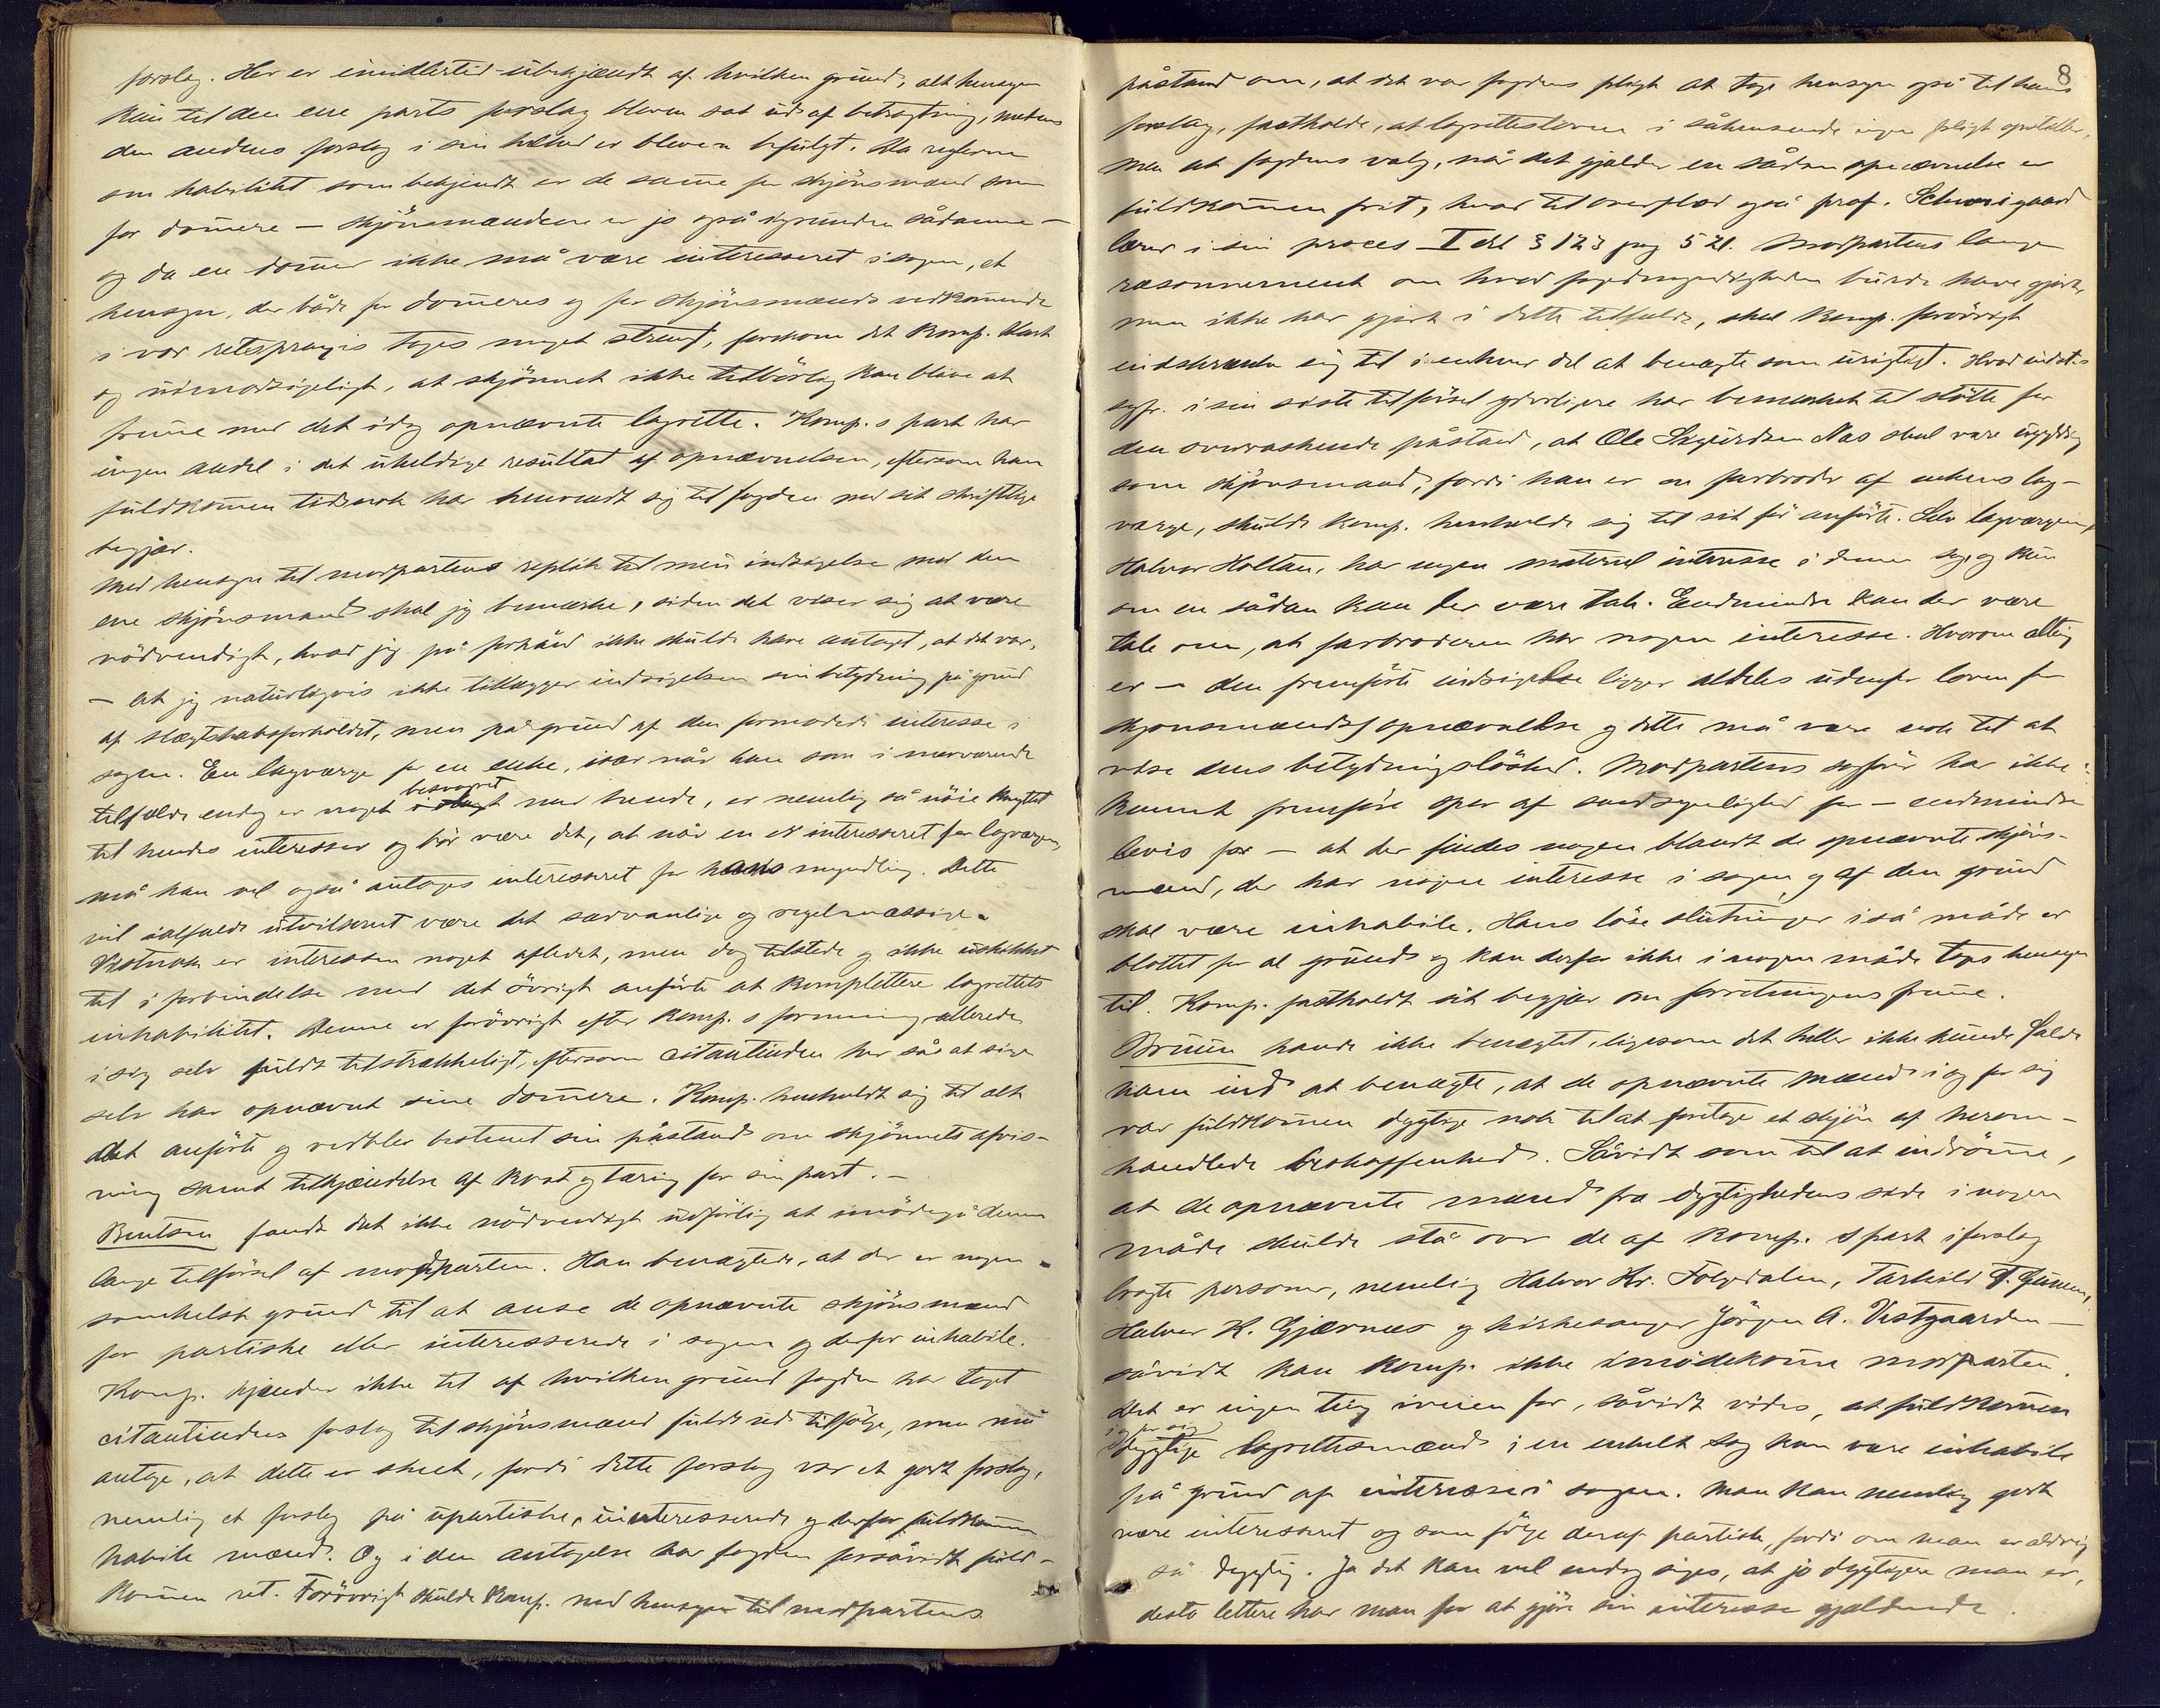 forslag. Her er imidlertid ubekjendt af hvilken grund, alt hensyn
kun til den ene parts forslag bleven sat ud af betragtning, medens
den andens forslag i sin helhed er bleven befulgt. Da reglerne
om habilitet som bekjendt er de samme for skjönsmænd som
for dommere – skjönsmændene er jo også i grunden sådanne –
og da en dommer ikke må være interesseret i sagen, et
hensyn, der både for dommeres og for skjönsmænds vedkommende
i vor retspraxis tages meget strengt, forekom det komp. klart
og uimodsigeligt, at skjönnet ikke tilbörlig kan blive at
fremme med det idag opnævnte lagrette. Komp.s part har
ingen andel i det uheldige resultat af opnævnelsen, eftersom han
fuldkommen tidsnok har henvendt sig til fogden med sit skriftlige
begjær.
Med hensyn til modpartens replik til min indsigelse mod den
ene skjönsmand skal jeg bemærke, siden det viser sig at være
nödvendigt, hvad jeg på forhånd ikke skulde have antaget, at det var,
– at jeg naturligvis ikke tillægger indsigelsen sin betydning på grund
af slægtskabsforholdet, men på grund af den formodede interesse i
sagen. En lagværge for en enke, især når han som i nærværende
tilfælde endog er noget besvogret med hende, er nemlig så nöie knyttet
til hendes interesser og bör være det, at når en er interesseret for lagværgen,
må han vel også antages interesseret for hans myndling. Dette
vil ialfald utvilsomt være det sædvanlige og regelmæssige.
Vistnok er interessen noget afledet, men dog tilstede og ikke uskikket
til i forbindelse med det övrigt anförte at komplettere lagrettets
inhabilitet. Denne er forövrigt efter komp.s formening allerede
i sig selv fuldt tilstrækkeligt, eftersom citantinden har så at sige
selv har opnævnt sine dommere. Komp. henholdt sig til alt
det anförte og vedblev bestemt sin påstand om skjönnets afvis-
ning samt tilkjendelse af kost og tæring for sin part. –
Bentsen fandt det ikke nödvendigt udförlig at imödegå denne
lange tilförsel af modparten. Han benægtede, at der er nogen
somhelst grund til at anse de opnævnte skjönsmænd
for partiske eller interesserede i sagen og derfor inhabile.
Komp. kjender ikke til af hvilken grund fogden har taget
citantindens forslag til skjönsmænd fuldt ud tilfölge, men må
antage, at dette er skeet, fordi dette forslag var et godt forslag,
nemlig et forslag på upartiske, uinteresserede og derfor fuldkommen
habile mænd. Og i den antagelse har fogden forsåvidt fuld-
kommen ret. Forövrigt skulde komp. med hensyn til modpartens
8
påstand om, at det var fogdens pligt at tage hensyn også til hans
forslag, fastholde, at lagrettesloven i såhenseende ingen pligt opstiller,
men at fogdens valg, når det gjælder en sådan opnævnelse er
fuldkommen frit, hvad til overflod også prof. Schweigaard
lærer i sin proces I del § 123 pag 521. Modpartens lange
ræsonnement om hvad fogedmyndigheden burde have gjort,
men ikke har gjort i dette tilfælde, skal komp. forövrigt
indskrænke sig til i enhver del at benægte som urigtigt. Hvad indst.s
sagf. i sin siste tilförsel yderligere har bemerket til stötte for
den overraskende påstand, at Ole Sigurdsen Næs skal være ugyldig
som skjönsmand, fordi han er en farbroder af enkens lag-
værge, skulde komp. henholde sig til sit för anförte. Selv lagværgen,
Halvor Holtan, har ingen materiel interesse i denne sag, og kun
om en sådan kan der være tale. Endmindre kan der være
tale om, at farbroderen har nogen interesse. Hvorom alting
er – den fremförte indsigelse ligger aldeles udenfor loven for
skjönsmænds opnævnelse og dette må være nok til at
vise dens betydningslöshed. Modpartens sagförer har ikke
kunnet fremföre spor af sandsynlighed for – endmindre
bevis for – at der findes nogen blandt de opnævnte skjöns-
mænd, der har nogen interesse i sagen og af den grund
skal være inhabile. Hans löse slutninger i så måde er
blottet for al grund og kan derfor ikke i nogen måde tages hensyn
til. Komp. fastholdt sit begjær om forretningens fremme.
Bruun havde ikke benægtet, ligesom det heller ikke kunde falde
ham ind at benægte, at de opnævnte mænd i og for sig
var fuldkommen dygtige nok til at foretage et skjön af herom-
handlede beskaffenhed. Såvidt som til at indrömme,
at de opnævnte mænd fra dygtighedens side i nogen
måde skulde stå over de af komp.s part i forslag
bragte personer, nemlig Halvor Kr. Folgedalen, Tarkild T.
Halvor K. Gjærnæs og kirkesanger Jörgen A. Vestgaarden –
såvidt kan komp. ikke imödekomme modparten.
Det er ingen ting iveien for, såvidt vides, at fuldkommen
i og for sig dygtige lagrettesmænd i en enkelt sag kan være inhabile
på grund af interesse i sagen. Man kan nemlig godt
være interesseret og som fölge deraf partisk, fordi om man er aldrig
så dygtig. Ja det kan vel endog siges, at jo dygtigere man er,
desto lettere har man for at gjöre sin interesse gjældende.